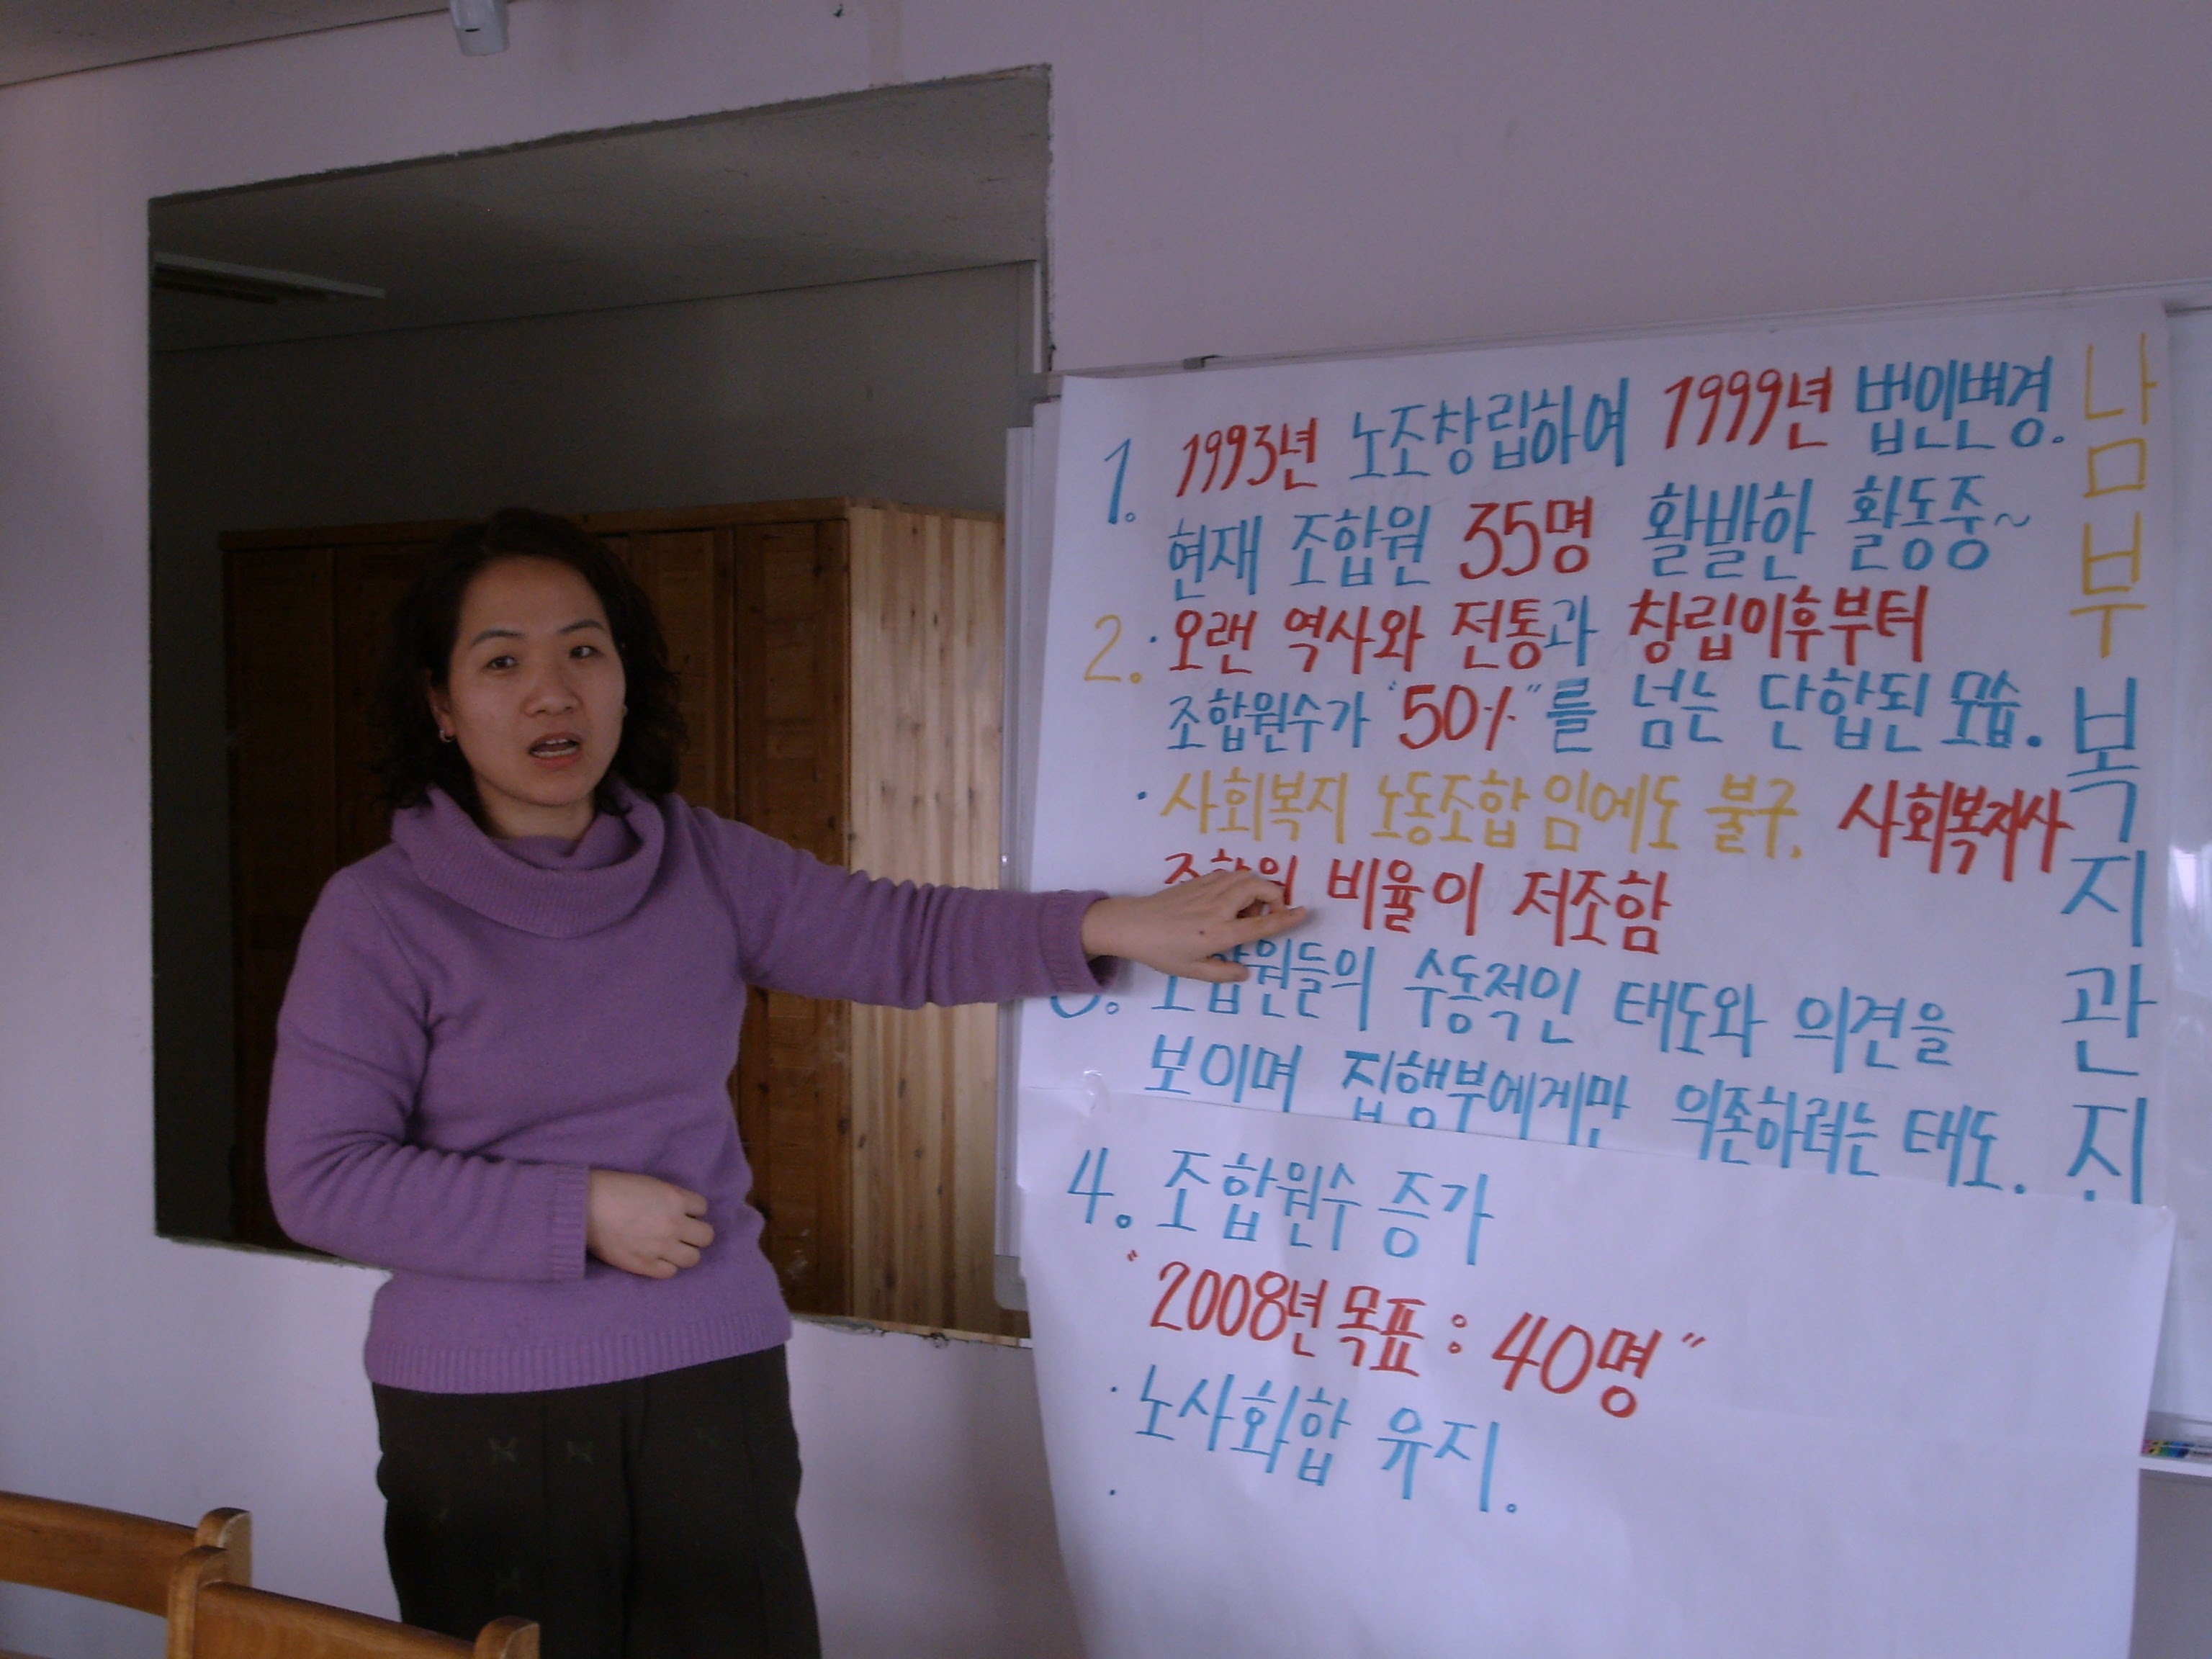 1. 1993년 노조창립하여 1999년 법인변경.
현재 조합원 35명 활발한 활동중~
2. · 오랜 역사와 전통과 창립이후부터
조합원수가 "50%"를 넘는 단합된 모습.
· 사회복지 노동조합 임에도 불구, 사회복지사
조합원 비율이 저조함
3. 조합원들의 수동적인 태도와 의견을
보이며 집행부에게만 의존하려는 태도.
4. 조합원수 증가
"2008년 목표 : 40명"
· 노사화합 유지.
·
남부복지관지